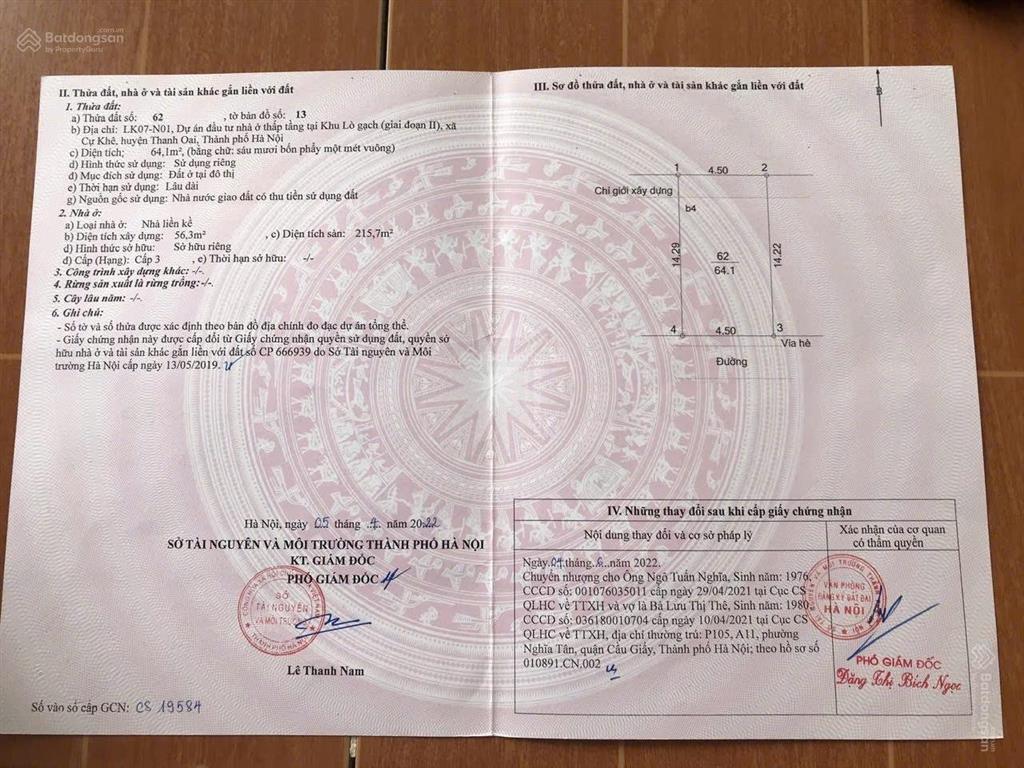 Batdongsan.com.vn
by PropertyGuru
II. Thửa đất, nhà ở và tài sản khác gắn liền với đất
1. Thửa đất:
a) Thửa đất số: 62 , tờ bản đồ số: 13
b) Địa chỉ: LK07-N01, Dự án đầu tư nhà ở thấp tầng tại Khu Lò gạch (giai đoạn II), xã
Cự Khê, huyện Thanh Oai, Thành phố Hà Nội
c) Diện tích: 64,1m², (bằng chữ: sáu mươi bốn phẩy một mét vuông)
d) Hình thức sử dụng: Sử dụng riêng
đ) Mục đích sử dụng: Đất ở tại đô thị
e) Thời hạn sử dụng: Lâu dài
g) Nguồn gốc sử dụng: Nhà nước giao đất có thu tiền sử dụng đất
2. Nhà ở:
a) Loại nhà ở: Nhà liền kề
b) Diện tích xây dựng: 56,3m² , c) Diện tích sàn: 215,7m²
d) Hình thức sở hữu: Sở hữu riêng
đ) Cấp (Hạng): Cấp 3 , e) Thời hạn sở hữu: -/-
3. Công trình xây dựng khác: -/-.
4. Rừng sản xuất là rừng trồng:-/-.
5. Cây lâu năm: -/-.
6. Ghi chú:
- Số tờ và số thửa được xác định theo bản đồ địa chính đo đạc dự án tổng thể.
- Giấy chứng nhận này được cấp đổi từ Giấy chứng nhận quyền sử dụng đất, quyền sở
hữu nhà ở và tài sản khác gắn liền với đất số CP 666939 do Sở Tài nguyên và Môi
trường Hà Nội cấp ngày 13/05/2019.
Hà Nội, ngày 05 tháng 4 năm 2022
SỞ TÀI NGUYÊN VÀ MÔI TRƯỜNG THÀNH PHỐ HÀ NỘI
KT. GIÁM ĐỐC
PHÓ GIÁM ĐỐC
SỞ
TÀI NGUYÊN
VÀ MÔI TRƯỜNG
THÀNH PHỐ HÀ NỘI
Lê Thanh Nam
Số vào sổ cấp GCN: CS 19584
III. Sơ đồ thửa đất, nhà ở và tài sản khác gắn liền với đất
B
1 4.50 2
Chỉ giới xây dựng
b4
14.29
62
64.1
14.22
4 4.50 3
Vỉa hè
Đường
IV. Những thay đổi sau khi cấp giấy chứng nhận
Nội dung thay đổi và cơ sở pháp lý
Xác nhận của cơ quan
có thẩm quyền
Ngày.04.tháng.6..năm 2022.
Chuyển nhượng cho Ông Ngô Tuấn Nghĩa, Sinh năm: 1976,
CCCD số: 001076035011 cấp ngày 29/04/2021 tại Cục CS
QLHC về TTXH và vợ là Bà Lưu Thị Thê, Sinh năm: 1980,
CCCD số: 036180010704 cấp ngày 10/04/2021 tại Cục CS
QLHC về TTXH, địa chỉ thường trú: P105, A11, phường
Nghĩa Tân, quận Cầu Giấy, Thành phố Hà Nội; theo hồ sơ số
010891.CN.002
VĂN PHÒNG
ĐĂNG KÝ ĐẤT ĐAI
HÀ NỘI
PHÓ GIÁM ĐỐC
Đặng Thị Bích Ngọc
Batdongsan